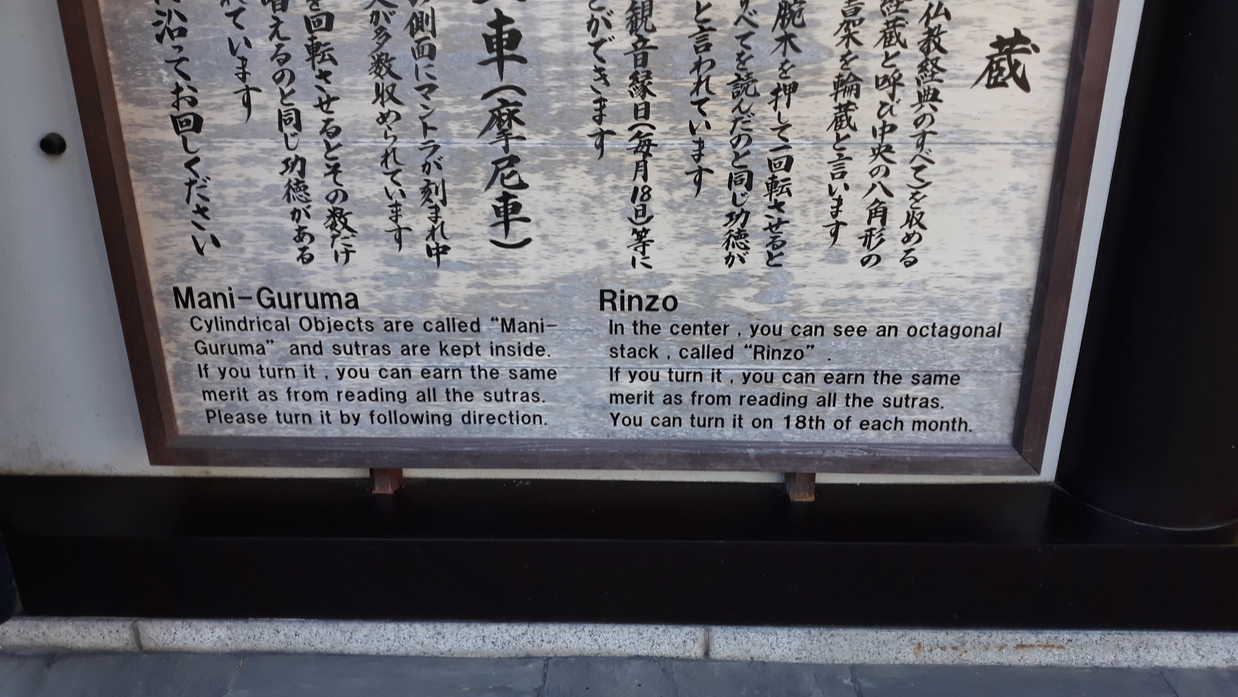 蔵
仏教経典のすべてを収める
経蔵と呼び中央の八角形の
書架を輪蔵と言います
腕木を押して一回転させると
すべてを読んだのと同じ功徳が
と言われています
観音縁日(毎月18日)等に
とができます
車(摩尼車)
側面にマントラが刻まれ中
が多数収められています
を回転させるとその数だけ
唱えるのと同じ功徳がある
れています
沿ってお回しください
Mani-Guruma
Cylindrical Objects are called “Mani-
Guruma” and sutras are kept inside.
If you turn it , you can earn the same
merit as from reading all the sutras.
Please turn it by following direction.
Rinzo
In the center , you can see an octagonal
stack , called “Rinzo” .
If you turn it , you can earn the same
merit as from reading all the sutras.
You can turn it on 18th of each month.